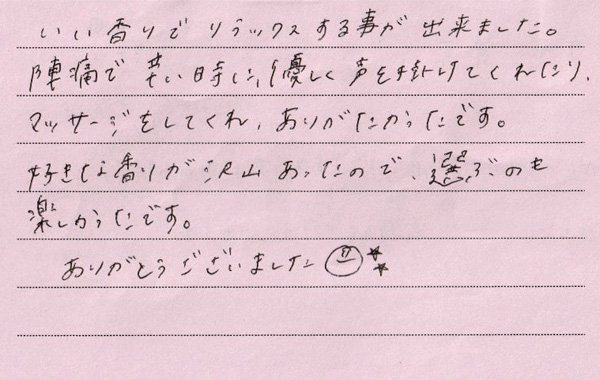 いい香りでリラックスする事が出来ました。
陣痛で苦い時に、優しく声を掛けてくれたり、
マッサージをしてくれ、ありがたかったです。
好きな香りが沢山あったので、選ぶのも
楽しかったです。
ありがとうございました